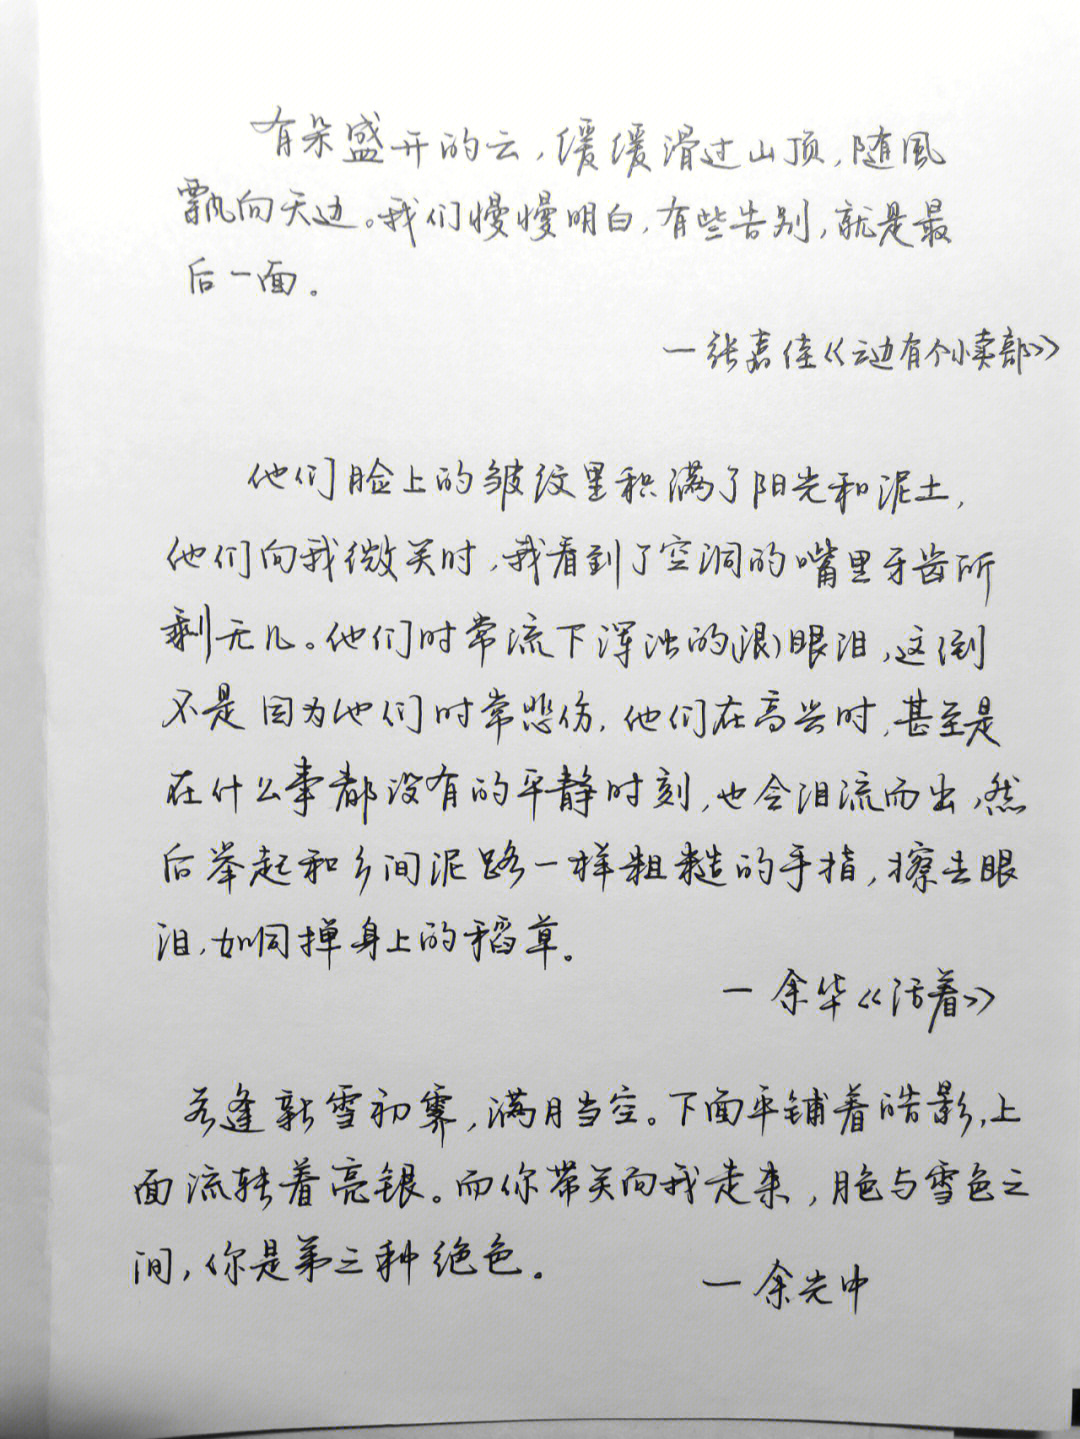 有朵盛开的云,缓缓滑过山顶,随風
飘向天边。我们慢慢明白,有些告别,就是最
后一面。
一张嘉佳《云边有个小卖部》
他们脸上的皱纹里积满了阳光和泥土,
他们向我微笑时,我看到了空洞的嘴里牙齿所
剩无几。他们时常流下浑浊的(泪)眼泪,这倒
不是因为他们时常悲伤,他们在高兴时,甚至是
在什么事都没有的平静时刻,也会泪流而出,然
后举起和乡间泥路一样粗糙的手指,擦去眼
泪,如同掸身上的稻草。
一余华《活着》
若逢新雪初霁,满月当空。下面平铺着皓影,上
面流转着亮银。而你带笑向我走来,月色与雪色之
间,你是第三种绝色。
一余光中